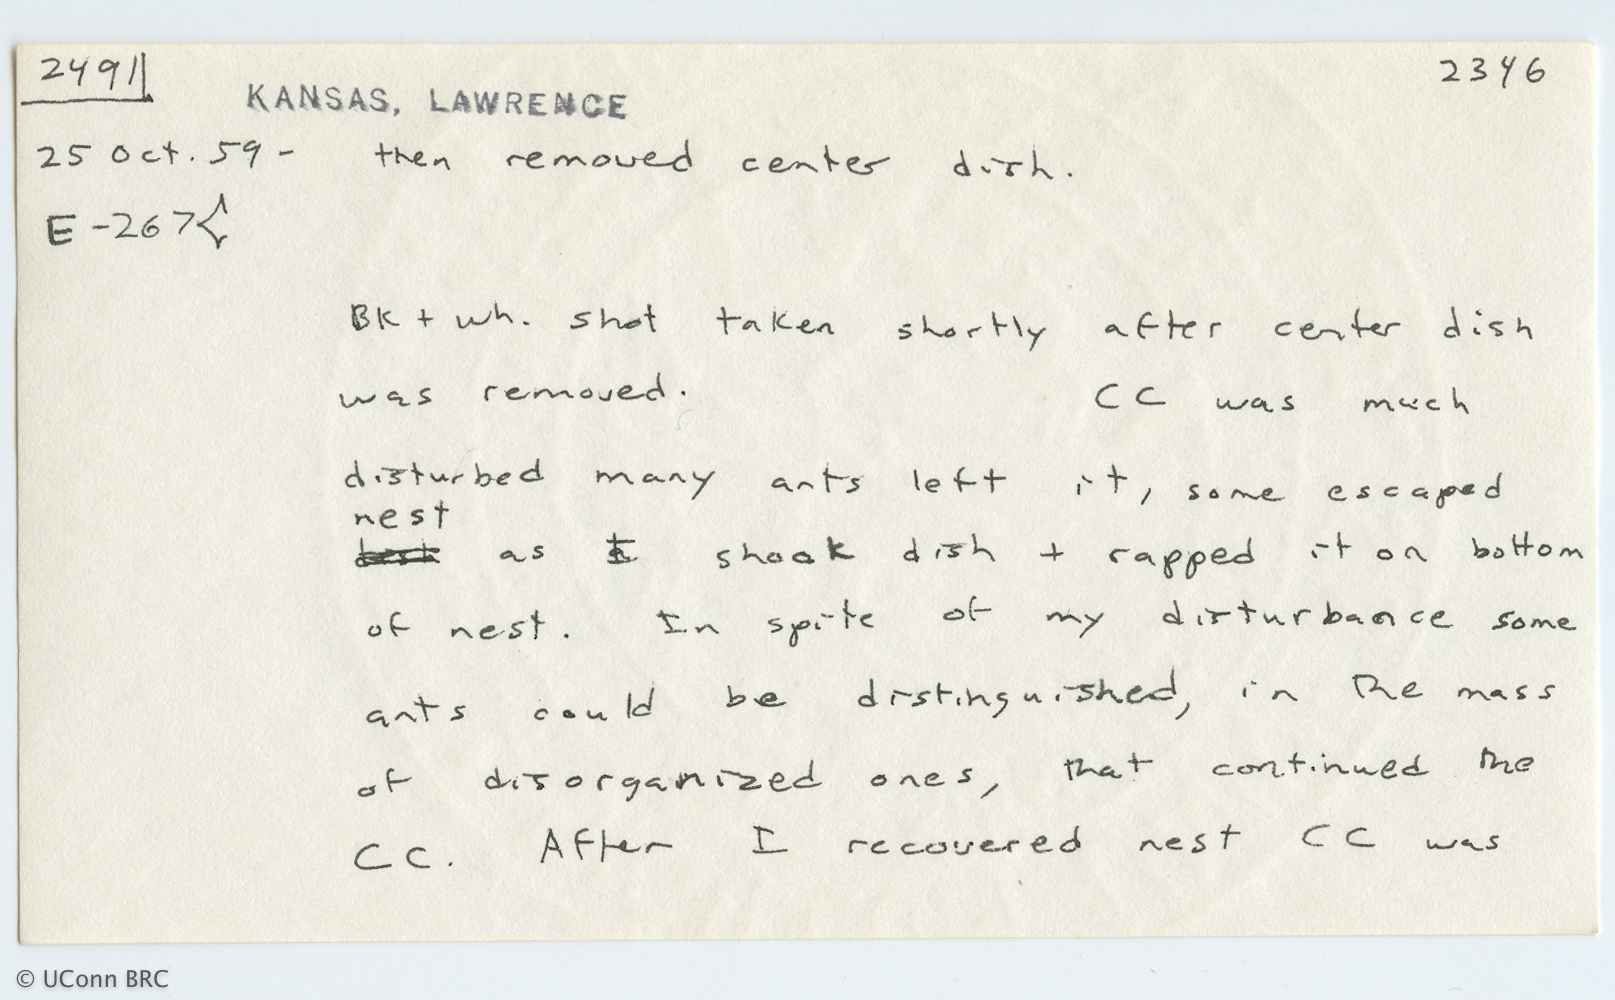 2491 2346
KANSAS, LAWRENCE
25 Oct. 59 - then removed center dish.
E-267
BK + wh. shot taken shortly after center dish
was removed. CC was much
disturbed many ants left it, some escaped
nest
as I shook dish + rapped it on bottom
of nest. In spite of my disturbance some
ants could be distinguished, in the mass
of disorganized ones, that continued the
CC. After I recovered nest CC was
© UConn BRC